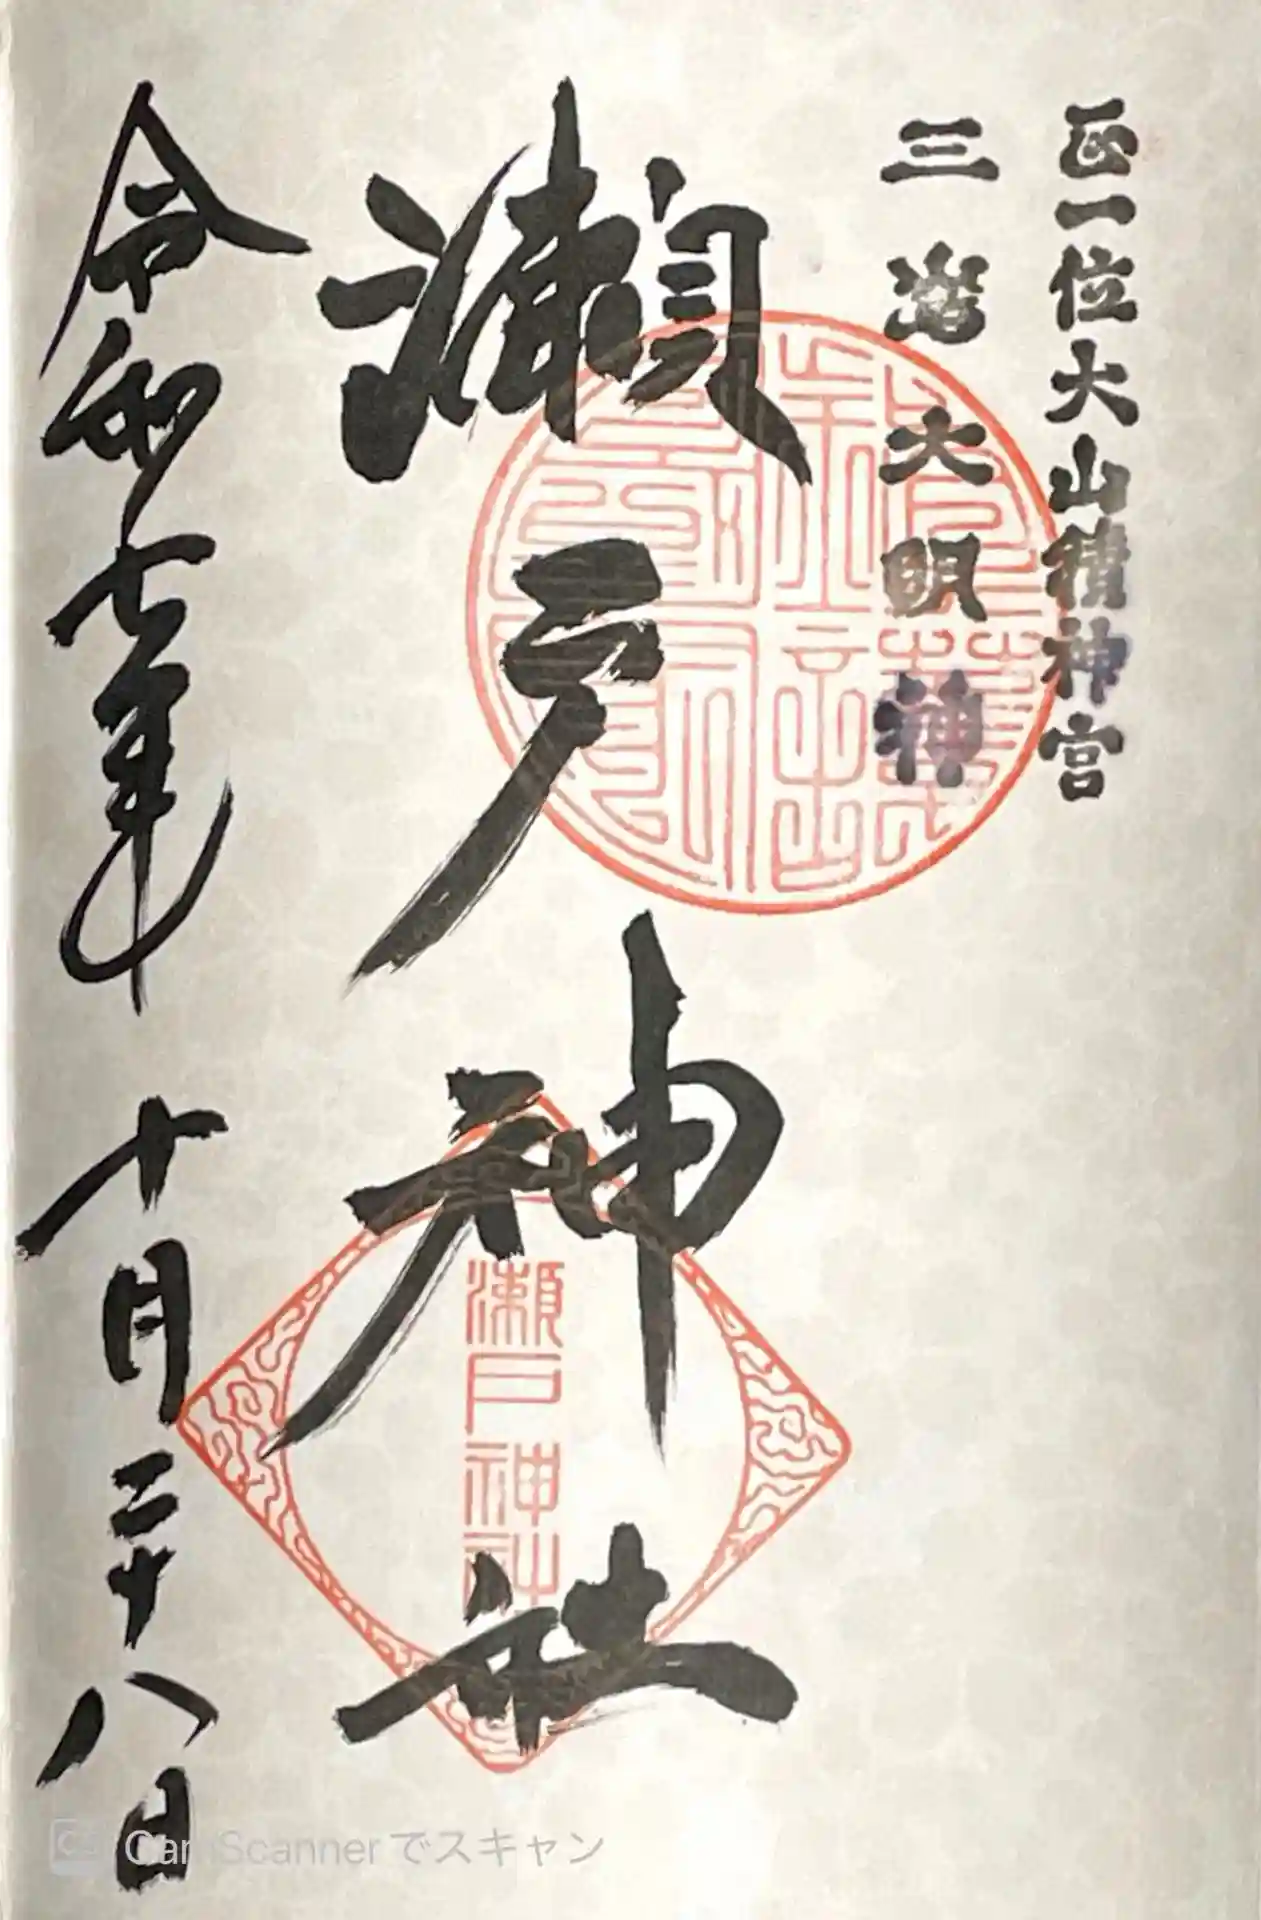 正一位大山積神宮
三嶌大明神
瀬戸神社
瀬戸神社
令和七年十月二十八日
CamScannerでスキャン